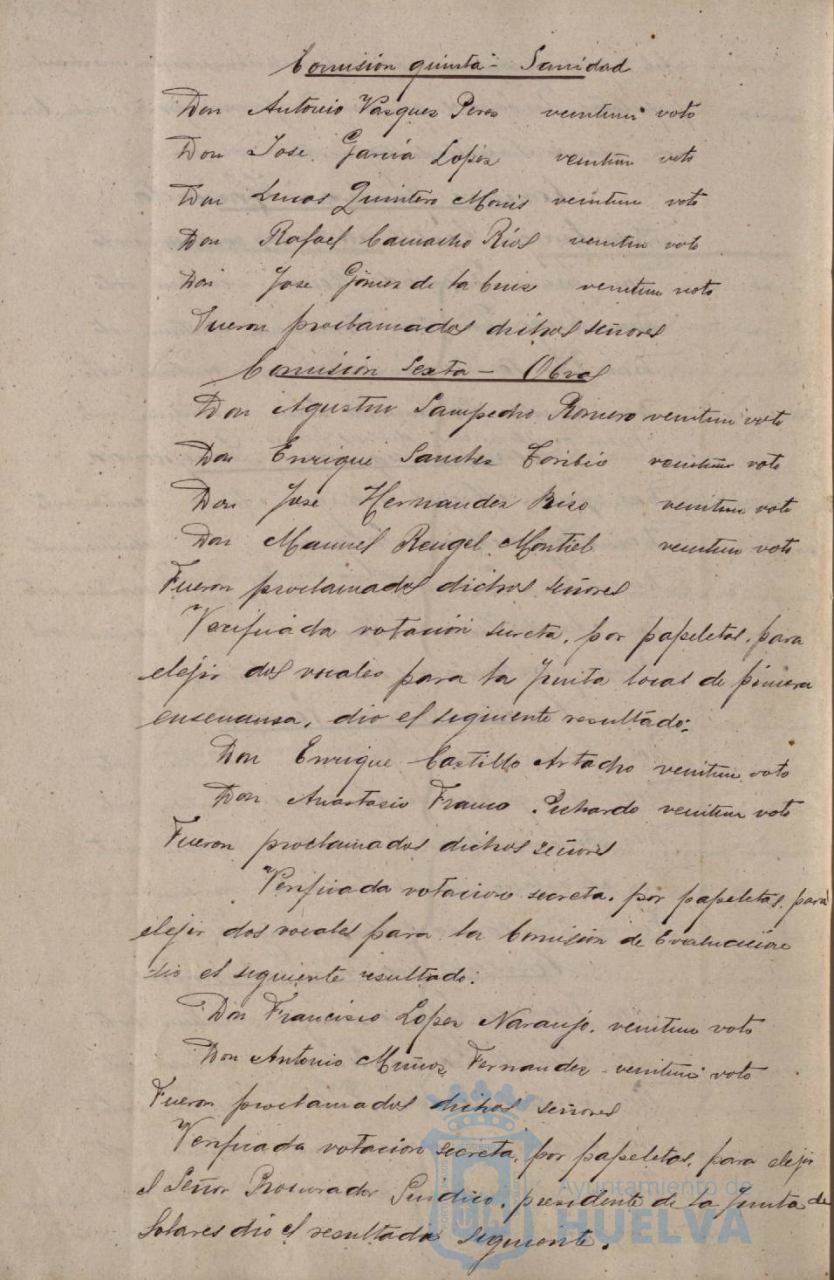 Comisión quinta - Sanidad
Don Antonio Vasquez Peres veintiun voto
Don Jose Garcia Lopez veintiun voto
Don Lucas Quintero Monis veintiun voto
Don Rafael Camacho Ríos veintiun voto
Don Jose Gómez de la Cruz veintiun voto
Fueron proclamados dichos señores
Comisión Sexta - Obras
Don Agustin Sampedro Romero veintiun voto
Don Enrique Sanchez Toribio veintiun voto
Don Jose Hernandez veintiun voto
Don Manuel Rengel Montiel veintiun voto
Fueron proclamados dichos señores
Verificada votación secreta, por papeletas, para
elejir dos vocales para la Junta local de primera
ensenansa, dio el seguiente resultado:
Don Enrique Castillo Artacho veintiun voto
Don Anastasio Franco Pichardo veintiun voto
Fueron proclamados dichos señores
Verificada votacion secreta, por papeletas, para
elejir dos vocales para la Comisión de Evaluación
dio el seguiente resultado:
Don Francisco Lopez Naranjo, veintiun voto
Don Antonio Muñoz Fernandez - veintiun voto
Fueron proclamados dichos señores
Verificada votacion secreta, por papeletas, para elejir
el Señor Procurador Sindico, presidente de la Junta de
Solares dio el resultado seguiente.
Ayuntamiento de
HUELVA